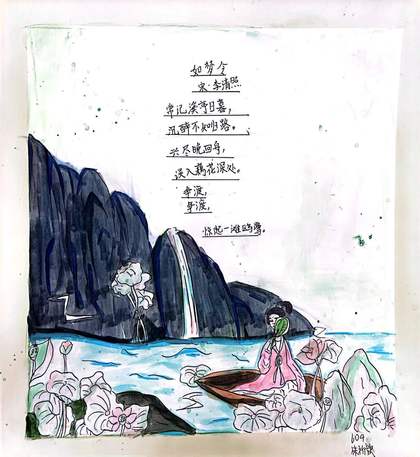 如梦令
宋·李清照
常记溪亭日暮，
沉醉不知归路。
兴尽晚回舟，
误入藕花深处。
争渡，
争渡，
惊起一滩鸥鹭。
609